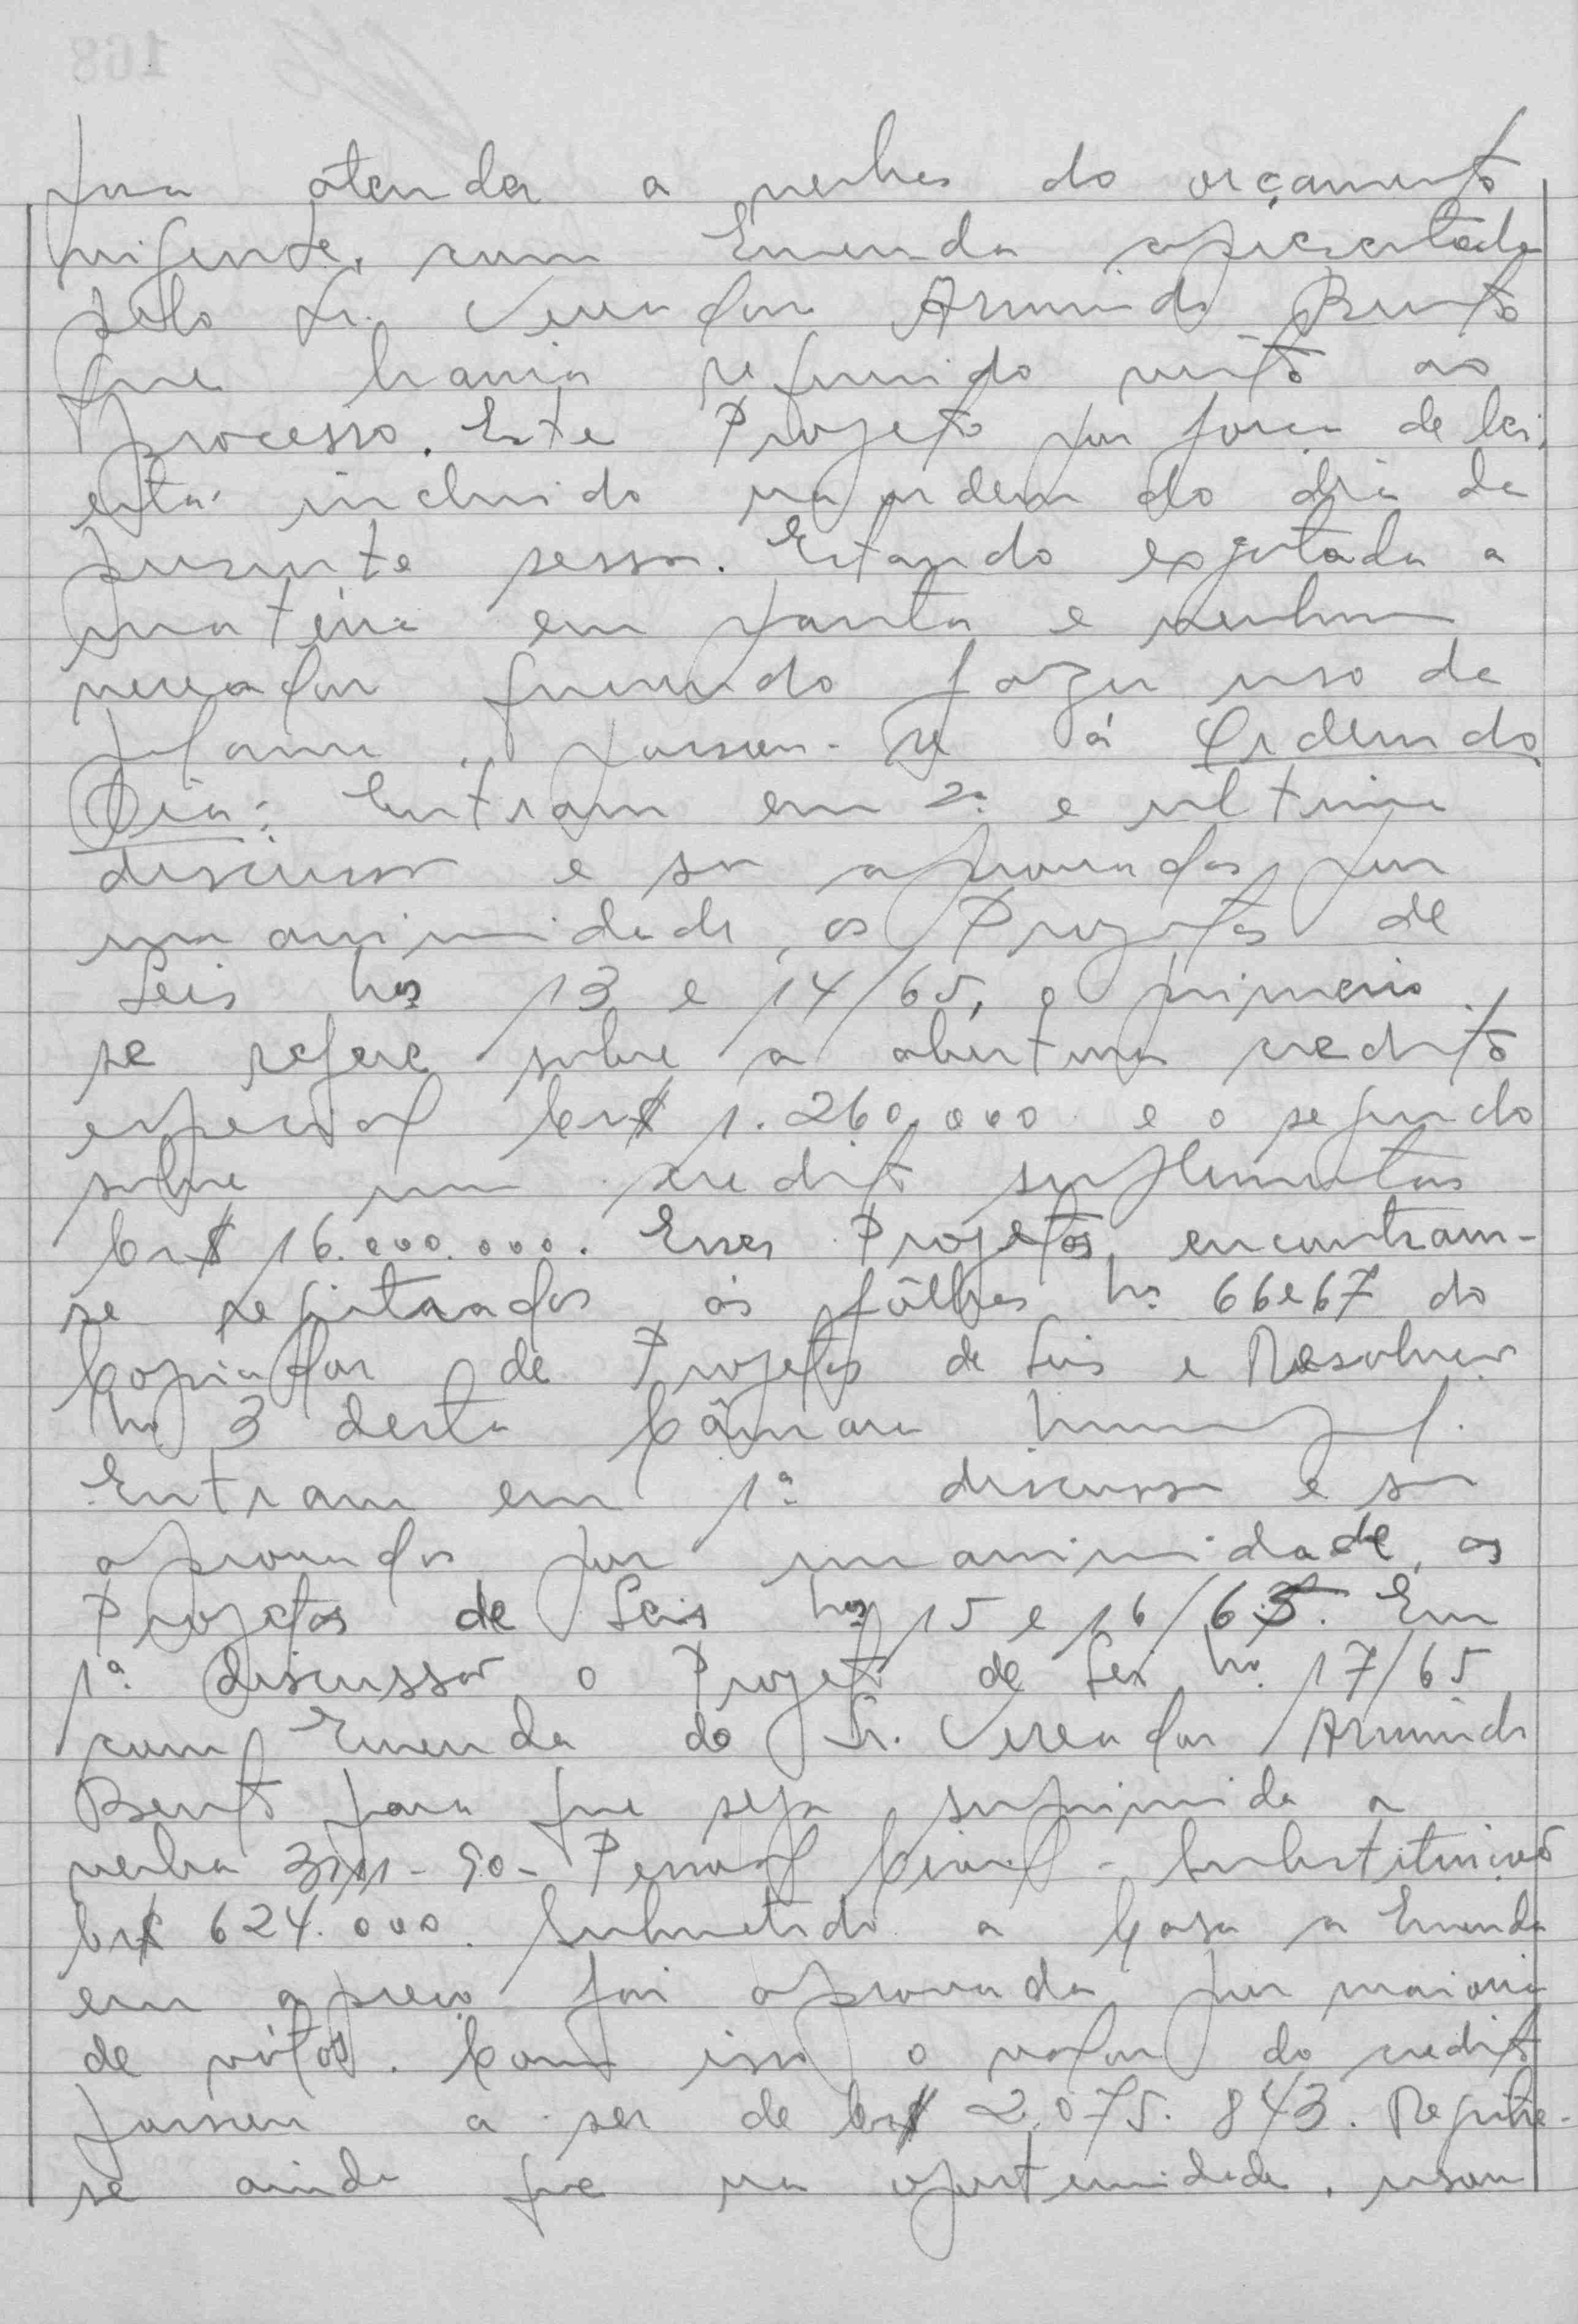 para atender a verbas do orçamento
vigente, com Emenda apresentada
pelo Sr. Vereador Armindo Bento
que havia requerido visto ao
processo. Este Projeto por força de lei,
está incluido na ordem do dia da
presente sessão. Estando exgotada a
matéria em pauta e nenhum
vereador querendo fazer uso da
palavra, passou-se á Ordem do
Dia: Entram em 2ª e ultima
discussão e são aprovados por
unanimidade, os Projetos de
Leis nºs 13 e 14/65, o primeiro
se refere sobre a abertura credito
especial Cr$ 1.260.000 e o segundo
sobre um credito suplementar
Cr$ 16.000.000. Esses Projetos, encontram-
se registrados ás fôlhas nº 66 e 67 do
Copiador de Projetos de Leis e Resoluções
nº 3 desta Câmara Municipal.
Entram em 1ª discussão e são
aprovados por unanimidade, os
Projetos de Leis nºs 15 e 16/65. Em
1ª discussão o Projeto de Lei nº 17/65
com Emenda do Sr. Vereador Armindo
Bento para que seja suprimida a
verba 3111-90- Pessoal Civil - Substituições
Cr$ 624.000. Submetido a Casa a Emenda
em apreço foi aprovada por maioria
de vótos. Com isso o valor do credito
passou a ser de Cr$ 2.075.843. Registre-
se ainda que na oportunidade, usou